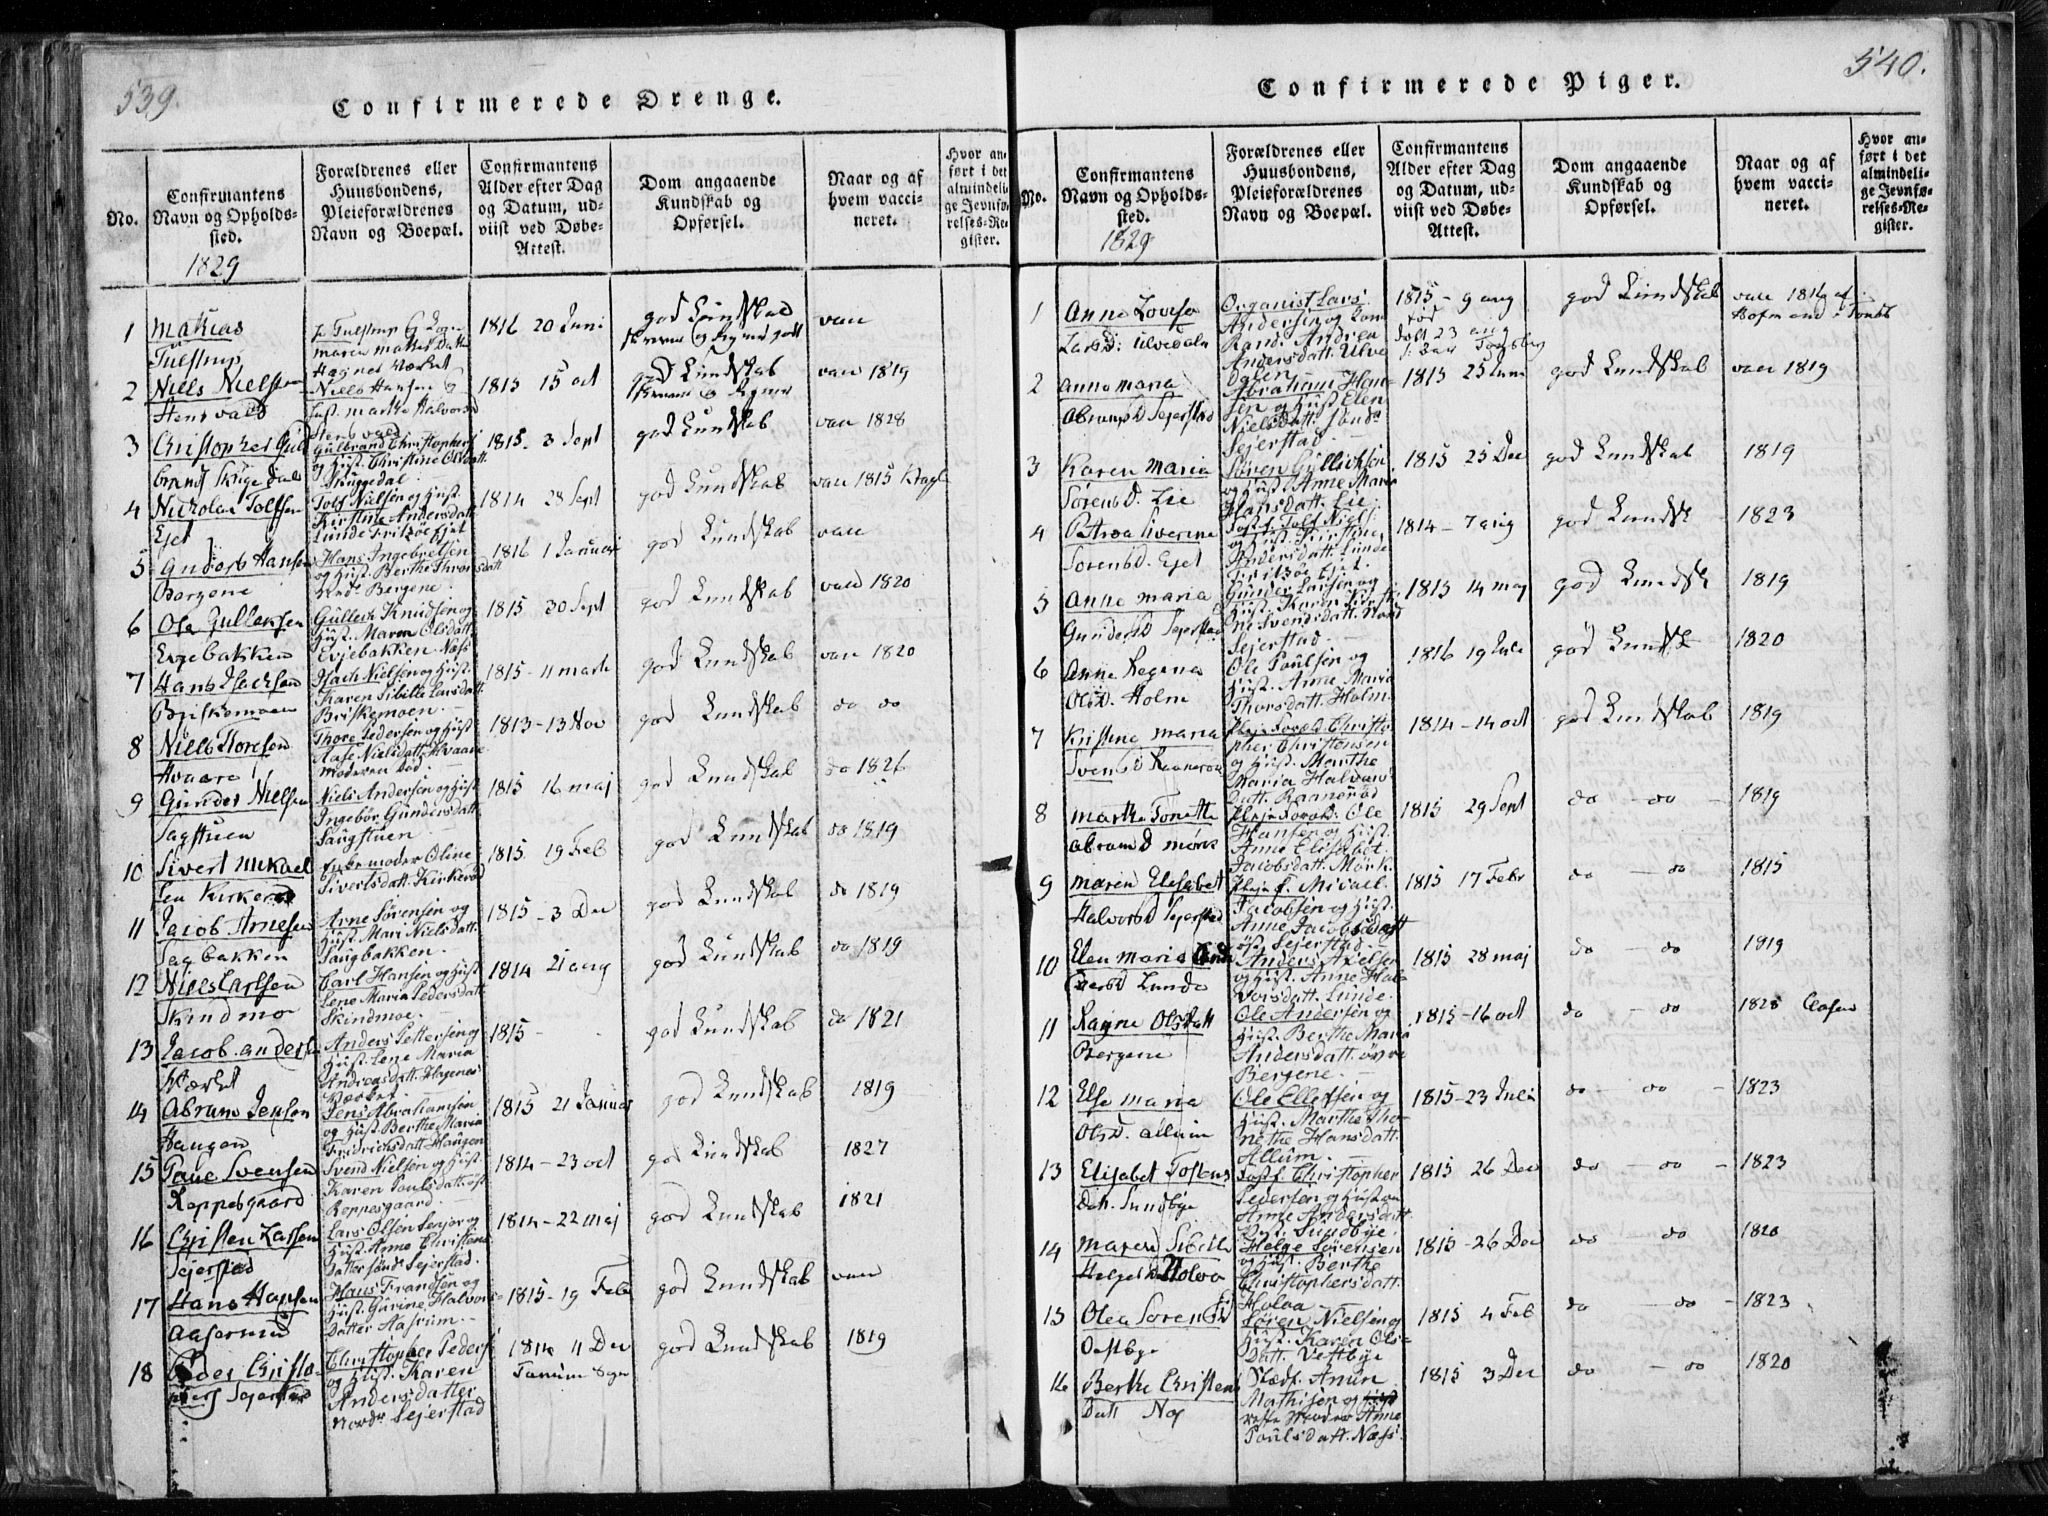 539.
Confirmerede Drenge.
No.
Confirmantens Navn og Opholds-sted.
Forældrenes eller Huusbondens, Pleieforældrenes Navn og Boepæl.
Confirmantens Alder efter Dag og Datum, ud-viist ved Døbe-Attest.
Dom angaaende Kundskab og Opførsel.
Naar og af hvem vacci-neret.
Hvor an-ført i det almindeli-ge Jevnfø-relses-Re-gister.
1829
1
Mathias
Tulstrup
Hagnes Værket
1816 20 Juni
god Kundskab
vac
2
Niels Nielsen
Stensvald
Niels Hansen og
Hust. Marthe Halvorsd
Stensvald
1815 15 oct
god Kundskab
vac 1819
3
Christopher Gul
brands Skrigedal
Gulbrand Christophers
og Hust. Christine Olsdatt.
1815 - 3 Sept
god Kundskab
vac 1828
4
Nicholai Tolfsen
Ejet
Tolf Nielsen og Hust.
Kirstine Andersdatt
Lunde Fritzøe Ejet
1814 28 Sept
god Kundskab
vac 1815
5
Gunder Hansen
Bergene
Hans Ingebretsen
og Hust. Berthe
Bergene
1816 1 Januar
god Kundskab
vac
6
Ole Gulleksen
Evjebakken
Gullech Knudsen og
Hust. Maren Olsdatt.
Evjebakken Næss
1815 30 Sept
god Kundskab
vac 1820
7
Hans Isachsen
Briskemoen
Isach Nielsen og Hust.
Karen Sibille Larsdatt.
Briskemoen
1815 - 11 marts
god Kundskab
vac 1820
8
Niels Thoresen
Hvaara
Thore Pedersen og Hust
Aase Nielsdatt. Hvaara
Moderen død
1813 - 13 Nov
god Kundskab
do do
9
Gunder Nielsen
Sagstuen
Niels Andersen og Hust.
Ingebor Gundersdatt.
Saugstuen
1815 16 maj
god Kundskab
do 1826
10
Sivert Mikael
sen Kirkerød
Oline
Sivertsdatt. Kirkerød
1815 19 Feb
god Kundskab
do 1819
11
Jacob Arnesen
Sagbakken
Arne Sørensen og
Hust. Mari Nielsdatt.
Saugbakken
1815 - 3 Dec
god Kundskab
do 1819
12
Niels Carlsen
Skindmo
Carl Hansen og Hust
Lene Maria Pedersdatt.
Skindmoe
1814 21 aug
god Kundskab
do 1819
13
Jacob Anders
Værket
Anders Pettersen og
Hust. Lene Maria
Andreasdatt. Hagenes
Værket
1815 -
god Kundskab
do 1821
14
Abram Jensen
Haugen
Jens Abrahamsen
og Hust. Berthe Maria
Fridrichsdatt. Haugen
1815 21 Januar
god Kundskab
1819
15
Svensen
Reppesgaard
Svend Nielsen og Hust.
Karen Poulsdatt.
Reppesgaard
1814 - 23 oct
god Kundskab
1827
16
Christen Larsen
Sejersted
Lars Olsen Senjor og
Hust. Anne Christens
Datter Søndr Sejerstad.
1814 - 22 maj
god Kundskab
1821
17
Hans Hansen
Aaserumd
Hans Frandsen og
Hust. Gurine Halvors-
Datter Aasrum
1815 - 19 Feb
god Kundskab
vac
18
Christo-
phers Sejersted
Christopher Peders
og Hust. Karen
Andersdatter
Nordr Sejerstad
1814 11 Dec
Tanum Sogn
god Kundskab
1819
540.
Confirmerede Piger.
No.
Confirmantens Navn og Opholds-sted.
Forældrenes eller Huusbondens, Pleieforældrenes Navn og Boepæl.
Confirmantens Alder efter Dag og Datum, ud-viist ved Døbe-Attest.
Dom angaaende Kundskab og Opførsel.
Naar og af hvem vacci-neret.
Hvor an-ført i det almindeli-ge Jevnfø-relses-Re-gister.
1829
1
Anne Lovise
Larsd: Ulvedalen
Organist Lars
Andersen og
Randi Andrea
Andersdatt. Ulve
dalen
1815 - 9 aug
fød
døbt 23 aug
god Kundskab
vac 1816 af
2
Anne Maria
Abramsd Sejerstad
Abraham Han-
sen og Hust. Elen
Nielsdatt. Søndr
Sejerstad
1815 25 Juni
god Kundskab
vac 1819
3
Karen Maria
Sørensd. Lie
Søren Gullichsen
og Hust. Anne Maria
Hansdatt. Lie
1815 25 Dec
god Kundskab
1819
4
Petrea Siverine
Sørensd. Ejet
Fostf. Tolf Niels:
og Hust. Kirstine
Andersdatt. Lunde
Fritzøe Ejet.
1814 - 7 aug
god Kundsk
1823
5
Anne Maria
Gundersd Sejerstad
Gunder Larsen og
Hust. Karen Kirsti-
ne Svendsdatt. Nord
Sejerstad
1815 14 maj
god Kundsk
1819
6
Anne Regine
Olsd. Holm
Ole Poulsen og
Hust. Anne Maria
Thorsdatt. Holm
1816 19 Juli
god Kundsk
1820
7
Kristine Maria
Svensd Raanerød
Pleje Foræld. Christo
pher Christensen
og Hust. Marthe
Maria Halvors
Datt. Raanerød
1814 - 14 oct
god Kundskab
1819
8
Marthe Tonette
Abramsd Mørk
Pleje Foræld. Ole
Hansen og Hust.
Anne Elisabet
Jacobsdatt. Mørk
1815 29 Sept
do - do
1819
9
Maren Elisabet
Halvorsd Sejersted
Pleje f. Micael
Jacobsen og Hust.
Anne Jacobsdatt
Sejerstad
1815 17 Febr
do - do
1815
10
Elen Maria Ande
Lunde
Anders Axelsen
og Hust. Anne Hal
vorsdatt. Lunde
1815 28 maj
do - do
1819
11
Ragne Olsdatt
Bergene
Ole Andersen og
Hust. Berthe Maria
Andersdatt. øvre
Bergene
1815 - 16 oct
do - do
1828
12
Else Maria
Olsd. Allum
Ole Ellefsen og
Hust. Marthe Tho-
nethe Hansdatt.
Allum
1815 - 23 Juli
do - do
1823
13
Elisabet Tostens
Datt. Sundbye
Fostf. Christopher
Pedersen og Hustru
Anne Andersdatt.
Sundbye
1815 26 Dec
do - do
1823
14
Maren Sibille
Helgesd Holva
Helge Sørensen
og Hust. Berthe
Christophersdatt.
Holva
1815 - 26 Dec
do - do
1820
15
Olea Sørensd
Vestbye
Søren Nielsen og
Hust. Karen Ols-
Datt. Vestbye
1815 4 Feb
do - do
1823
16
Berthe Christens
Datt Næs
Stedf.
Mathisen og
Moder Anne
Poulsdatt. Næss.
1815 3 Dec
do - do
1820